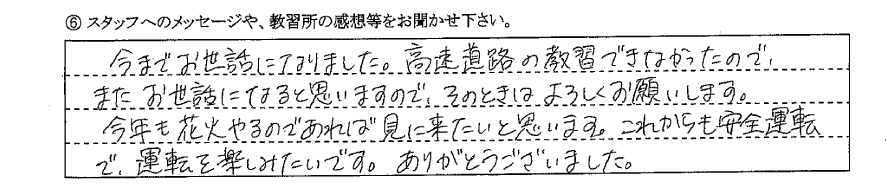 ⑥ スタッフへのメッセージや、教習所の感想等をお聞かせ下さい。
今までお世話になりました。高速道路の教習できなかったので、
またお世話になると思いますので、そのときはよろしくお願いします。
今年も花火やるのであれば見に来たいと思います。これからも安全運転
で、運転を楽しみたいです。ありがとうございました。